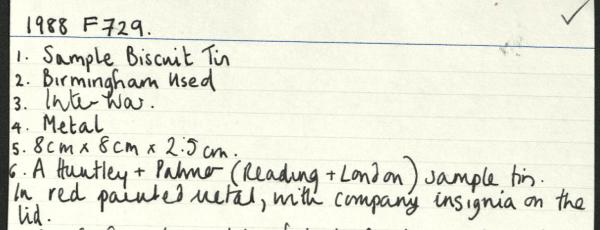 1988 F729.
1. Sample Biscuit Tin
2. Birmingham Used
3. Inter War.
4. Metal
5. 8cm x 8cm x 2.5cm.
6. A Huntley + Palmer (Reading + London) sample tin.
In red painted metal, with company insignia on the
lid.